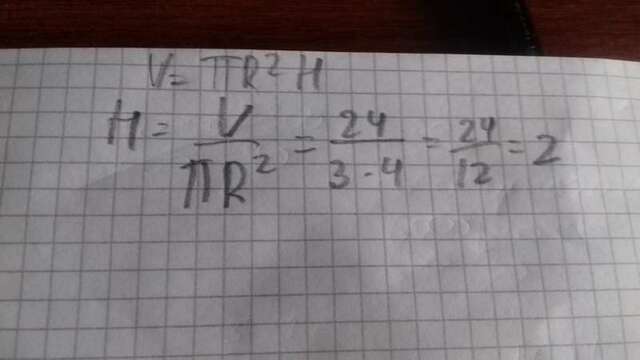 V = πR² H
H = V / πR² = 24 / 3·4 = 24 / 12 = 2